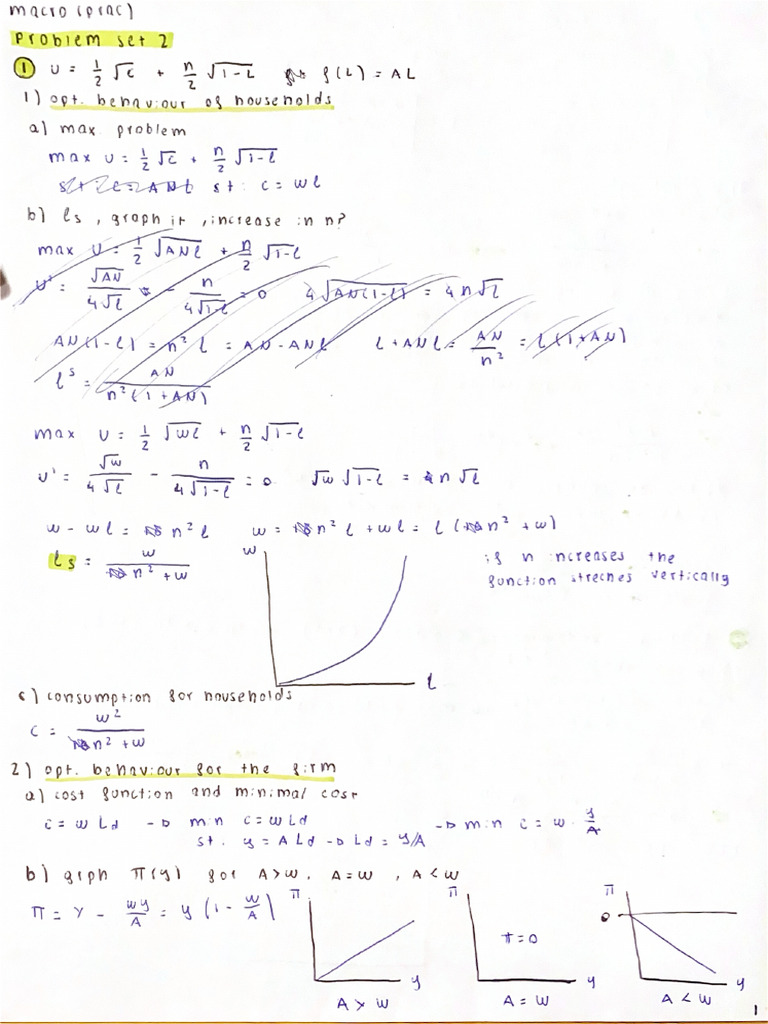 macro (prac)
Problem set 2
① U = 1/2 √C + n/2 √1-L f(L) = AL
1) opt. behaviour of households
a) max. problem
max U = 1/2 √c + n/2 √1-l
s.t. c = ANl st: c = wl
b) ls, graph it, increase in n?
max U = 1/2 √ANl + n/2 √1-l
U' = √AN / 4√l - n / 4√1-l = 0 4√AN(1-l) = 4n√l
AN(1-l) = n² l = AN - ANl l + ANl = AN/n² = l(1+AN)
l^s = AN / n²(1+AN)
max U = 1/2 √wl + n/2 √1-l
U' = √w / 4√l - n / 4√1-l = 0 √w √1-l = n√l
w - wl = n² l w = n² l + wl = l(n² + w)
ls = w / n² + w
w
if n increases the
function streches vertically
l
c) consumption for households
c = w² / n² + w
2) opt. behaviour for the firm
a) cost function and minimal cost
c = w Ld → min c = w Ld → min c = w · y/A
st. y = A Ld → Ld = y/A
b) grph π(y) for A>w, A=w, A<w
π = Y - wy/A = y (1 - w/A)
π π π
π=0 0
y y y
A > w A = w A < w
1